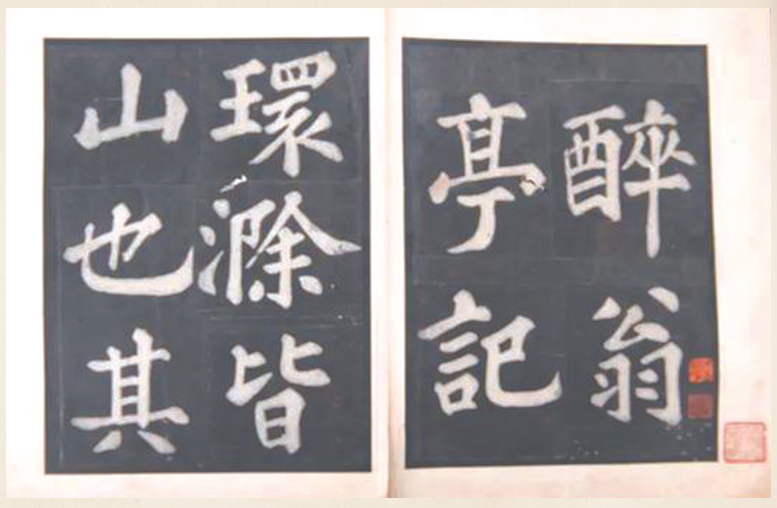 醉翁
亭記
環滁皆
山也其